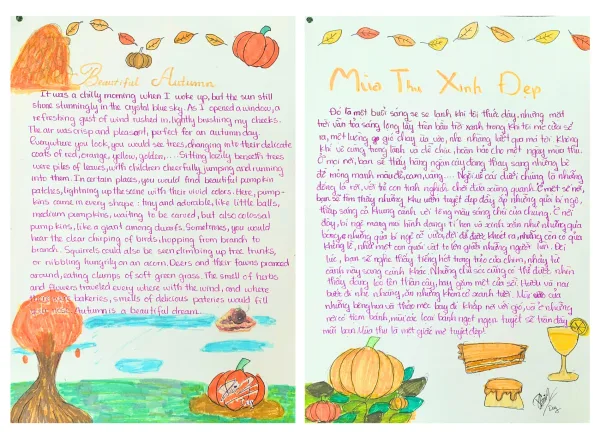 Beautiful Autumn
It was a chilly morning when I woke up, but the sun still
shone stunningly in the crystal blue sky. As I opened a window, a
refreshing gust of wind rushed in, lightly brushing my cheeks.
The air was crisp and pleasant, perfect for an autumn day.
Everywhere you look, you would see trees, changing into their delicate
coats of red, orange, yellow, golden, ... Sitting lazily beneath trees
were piles of leaves, with children cheerfully jumping and running
into them. In certain places, you would find beautiful pumpkin
patches, lightning up the scene with their vivid colors. Here, pump-
kins came in every shape: tiny and adorable, like little balls,
medium pumpkins, waiting to be carved, but also colossal
pumpkins, like a giant among dwarfs. Sometimes, you would
hear the clear chirping of birds, hopping from branch to
branch. Squirrels could also be seen climbing up tree trunks,
or nibbling hungrily on an acorn. Deers and their fawns pranced
around, eating clumps of soft green grass. The smell of herbs
and flowers traveled every where with the wind, and where
there were bakeries, smells of delicious pateries would fill
your nose. Autumn is a beautiful dream.
Mùa Thu Xinh Đẹp
Đó là một buổi sáng se se lạnh khi tôi thức dậy, nhưng mặt
trời vẫn tỏa sáng lộng lẫy trên bầu trời xanh trong. Khi tôi mở cửa sổ
ra, một luồng gió chạy ùa vào, nhẹ nhàng lướt qua má tôi. Không
khí vô cùng trong lành và dễ chịu, hoàn hảo cho một ngày mùa thu.
Ở mọi nơi, bạn sẽ thấy hàng ngàn cây đang thay sang những bộ
đồ mỏng manh màu đỏ, cam, vàng... Ngồi dưới các chúng là những
đống lá rơi, với trẻ con tinh nghịch chơi đùa xung quanh. Ở một số nơi,
bạn sẽ tìm thấy những khu vườn tuyệt đẹp đầy ắp những quả bí ngô,
thắp sáng cả khung cảnh với tông màu sáng chói của chúng. Ở nơi
đây, bí ngô mang mọi hình dạng: tí hon và xinh xắn như những quả
bóng, những quả bí ngô cỡ vừa, đợi để được khoét ra, nhưng còn có quả
khổng lồ, như một con quái vật to lớn giữa những người lùn. Đôi
lúc, bạn sẽ nghe thấy tiếng hót trong trẻo của chim, nhảy từ
cành này sang cành khác. Những chú sóc cũng có thể được nhìn
thấy đang leo lên thân cây, hay gặm một hạt sồi. Hươu và nai
bước đi nhẹ nhàng, ăn những khóm cỏ xanh tươi. Mùi của
những bông hoa và thảo mộc bay đi khắp nơi với gió, và ở những
nơi có tiệm bánh, mùi các loại bánh ngọt ngon tuyệt sẽ tràn đầy
mũi bạn. Mùa thu là một giấc mơ tuyệt đẹp!